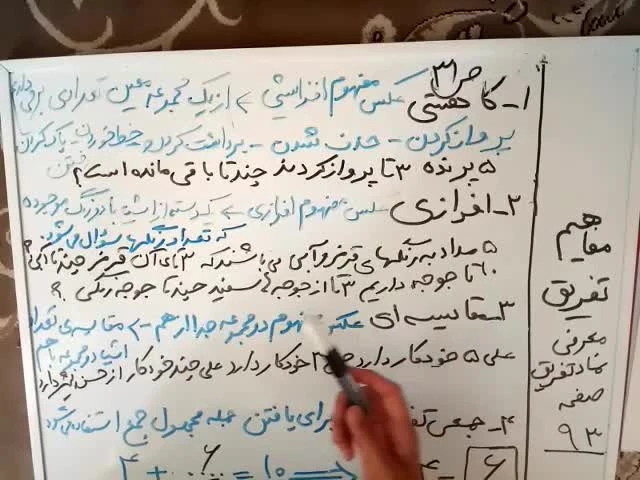 مفاهیم
تفریق
معرفی
نماد تفریق
صفحه
۹۳
ص ۳۱
۱- کاهشی عکس مفهوم افزایشی ← از یک مجموعه معین تعدادی برمی‌داریم
پرواز کردن - حذف شدن - برداشت کردن و خط خوردن - پاک کردن
۵ پرنده ۳ تا پرواز کردند چند تا باقی مانده است؟
۲- افرازی عکس مفهوم افزازی ← که دسته از اشیا با دو رنگ موجوده
که تعداد رنگها سؤال می‌شود
۵ مداد به رنگهای قرمز و آبی می باشند که ۳ تای آن قرمز چند تا آبی؟
۶ تا جوجه داریم ۳ تا از جوجه سفید چند تا جوجه رنگی ؟
۳- مقایسه ای دو مجموعه جدا از هم ← مقایسه ی تعداد
اشیا دو مجموعه با هم
علی ۵ خودکار دارد ۳ خودکار دارد علی چند خودکار از حسن بیشتر دارد
۴- جمعی برای یافتن جمله مجهول جمع استفاده می‌شود
۴ + ۶ = ۱۰
۶